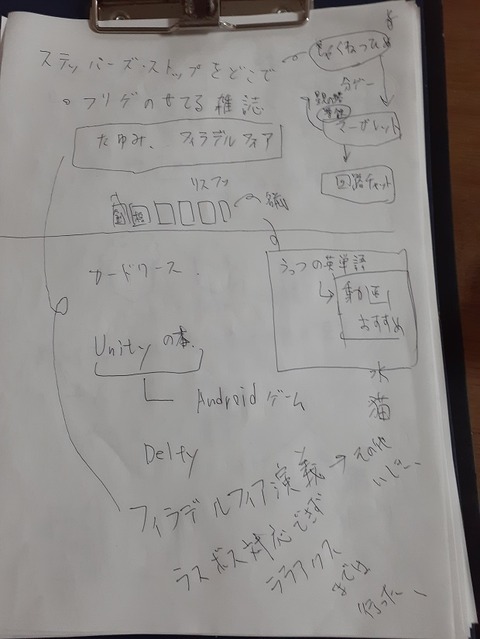 ステッパーズ・ストップをどこで
フリゲのせてる雑誌
たゆみ、フィラデルフィア
マーガレット
回路チャット
リスファ
カードワース
うっつの英単語
動画
おすすめ
Unityの本
Androidゲーム
水
猫
Delfy
フィラデルフィア演義→その他
ラスボス対応できず
ララアリス
までは
行った